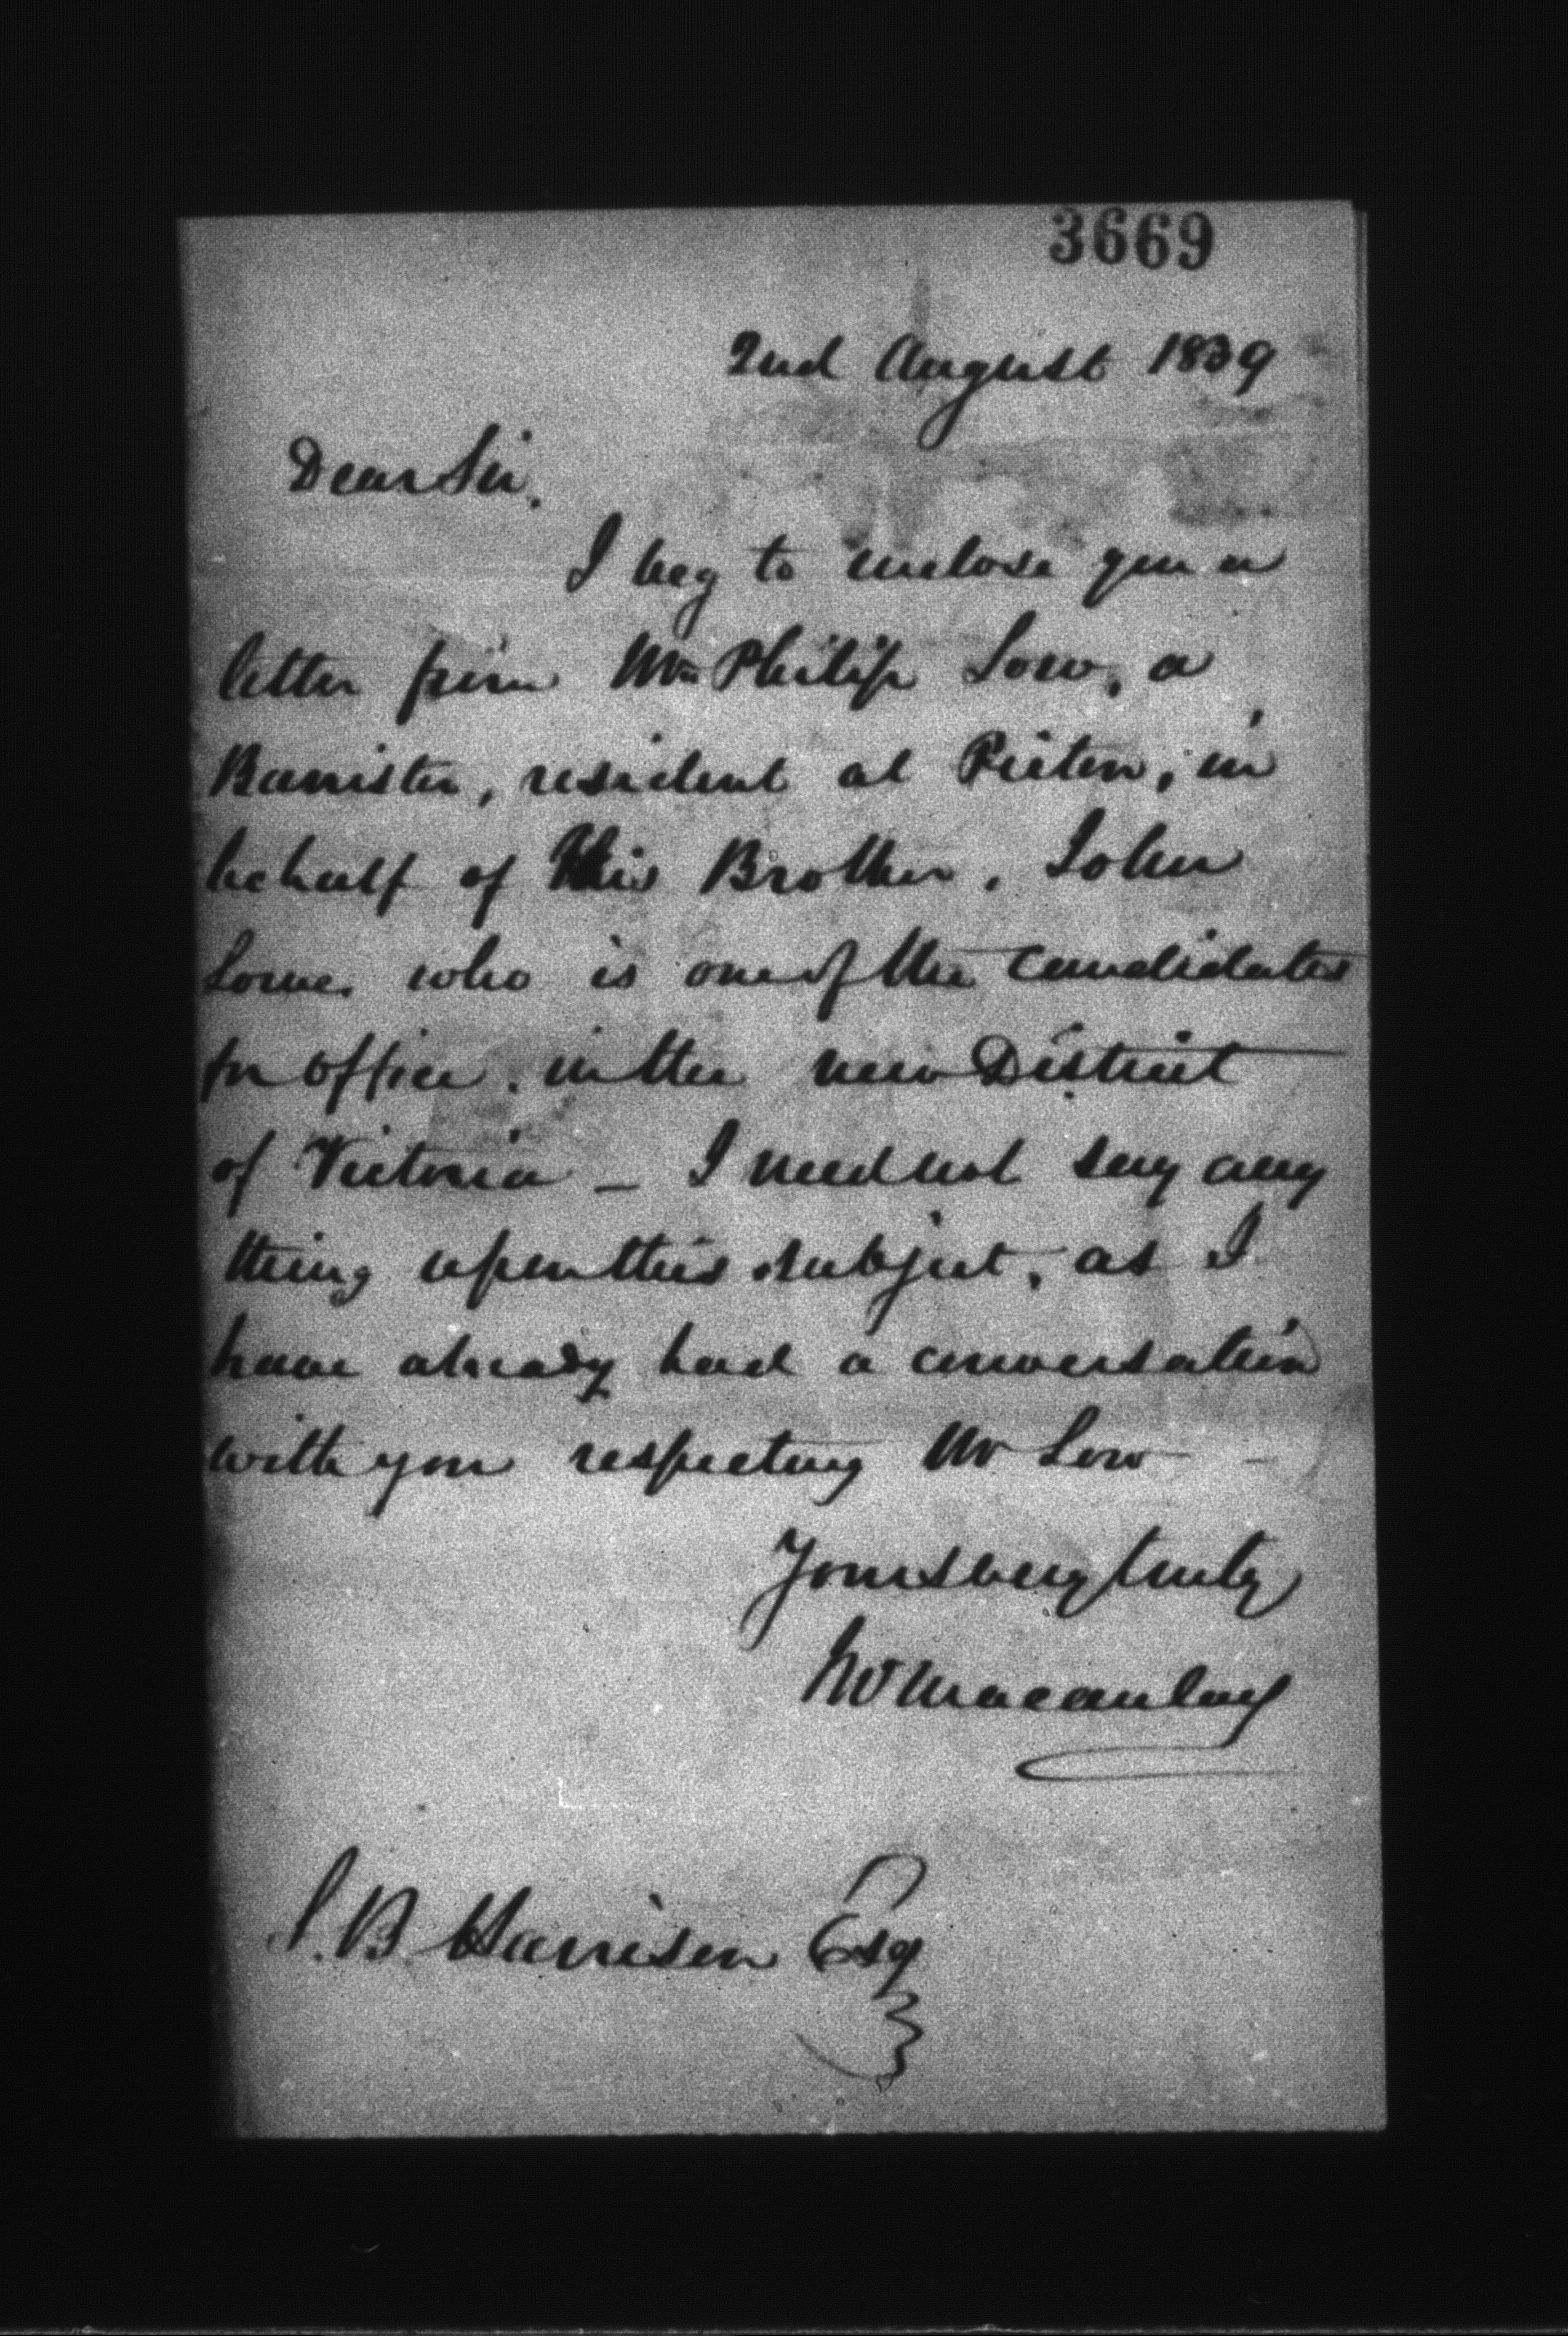 3669
2nd August 1839
Dear Sir.
I beg to enclose you a
letter from Mr Philip Low, a
Barrister, resident at Picton, in
behalf of His Brother, John
Lowe. who is one of the candidates
for office. in the new District
of Victoria _ I need not say any
thing upon this subject, as I
have already had a conversation
with you respecting Mr Low -
Yours very truly
Macaulay
S. B Harrison Esq